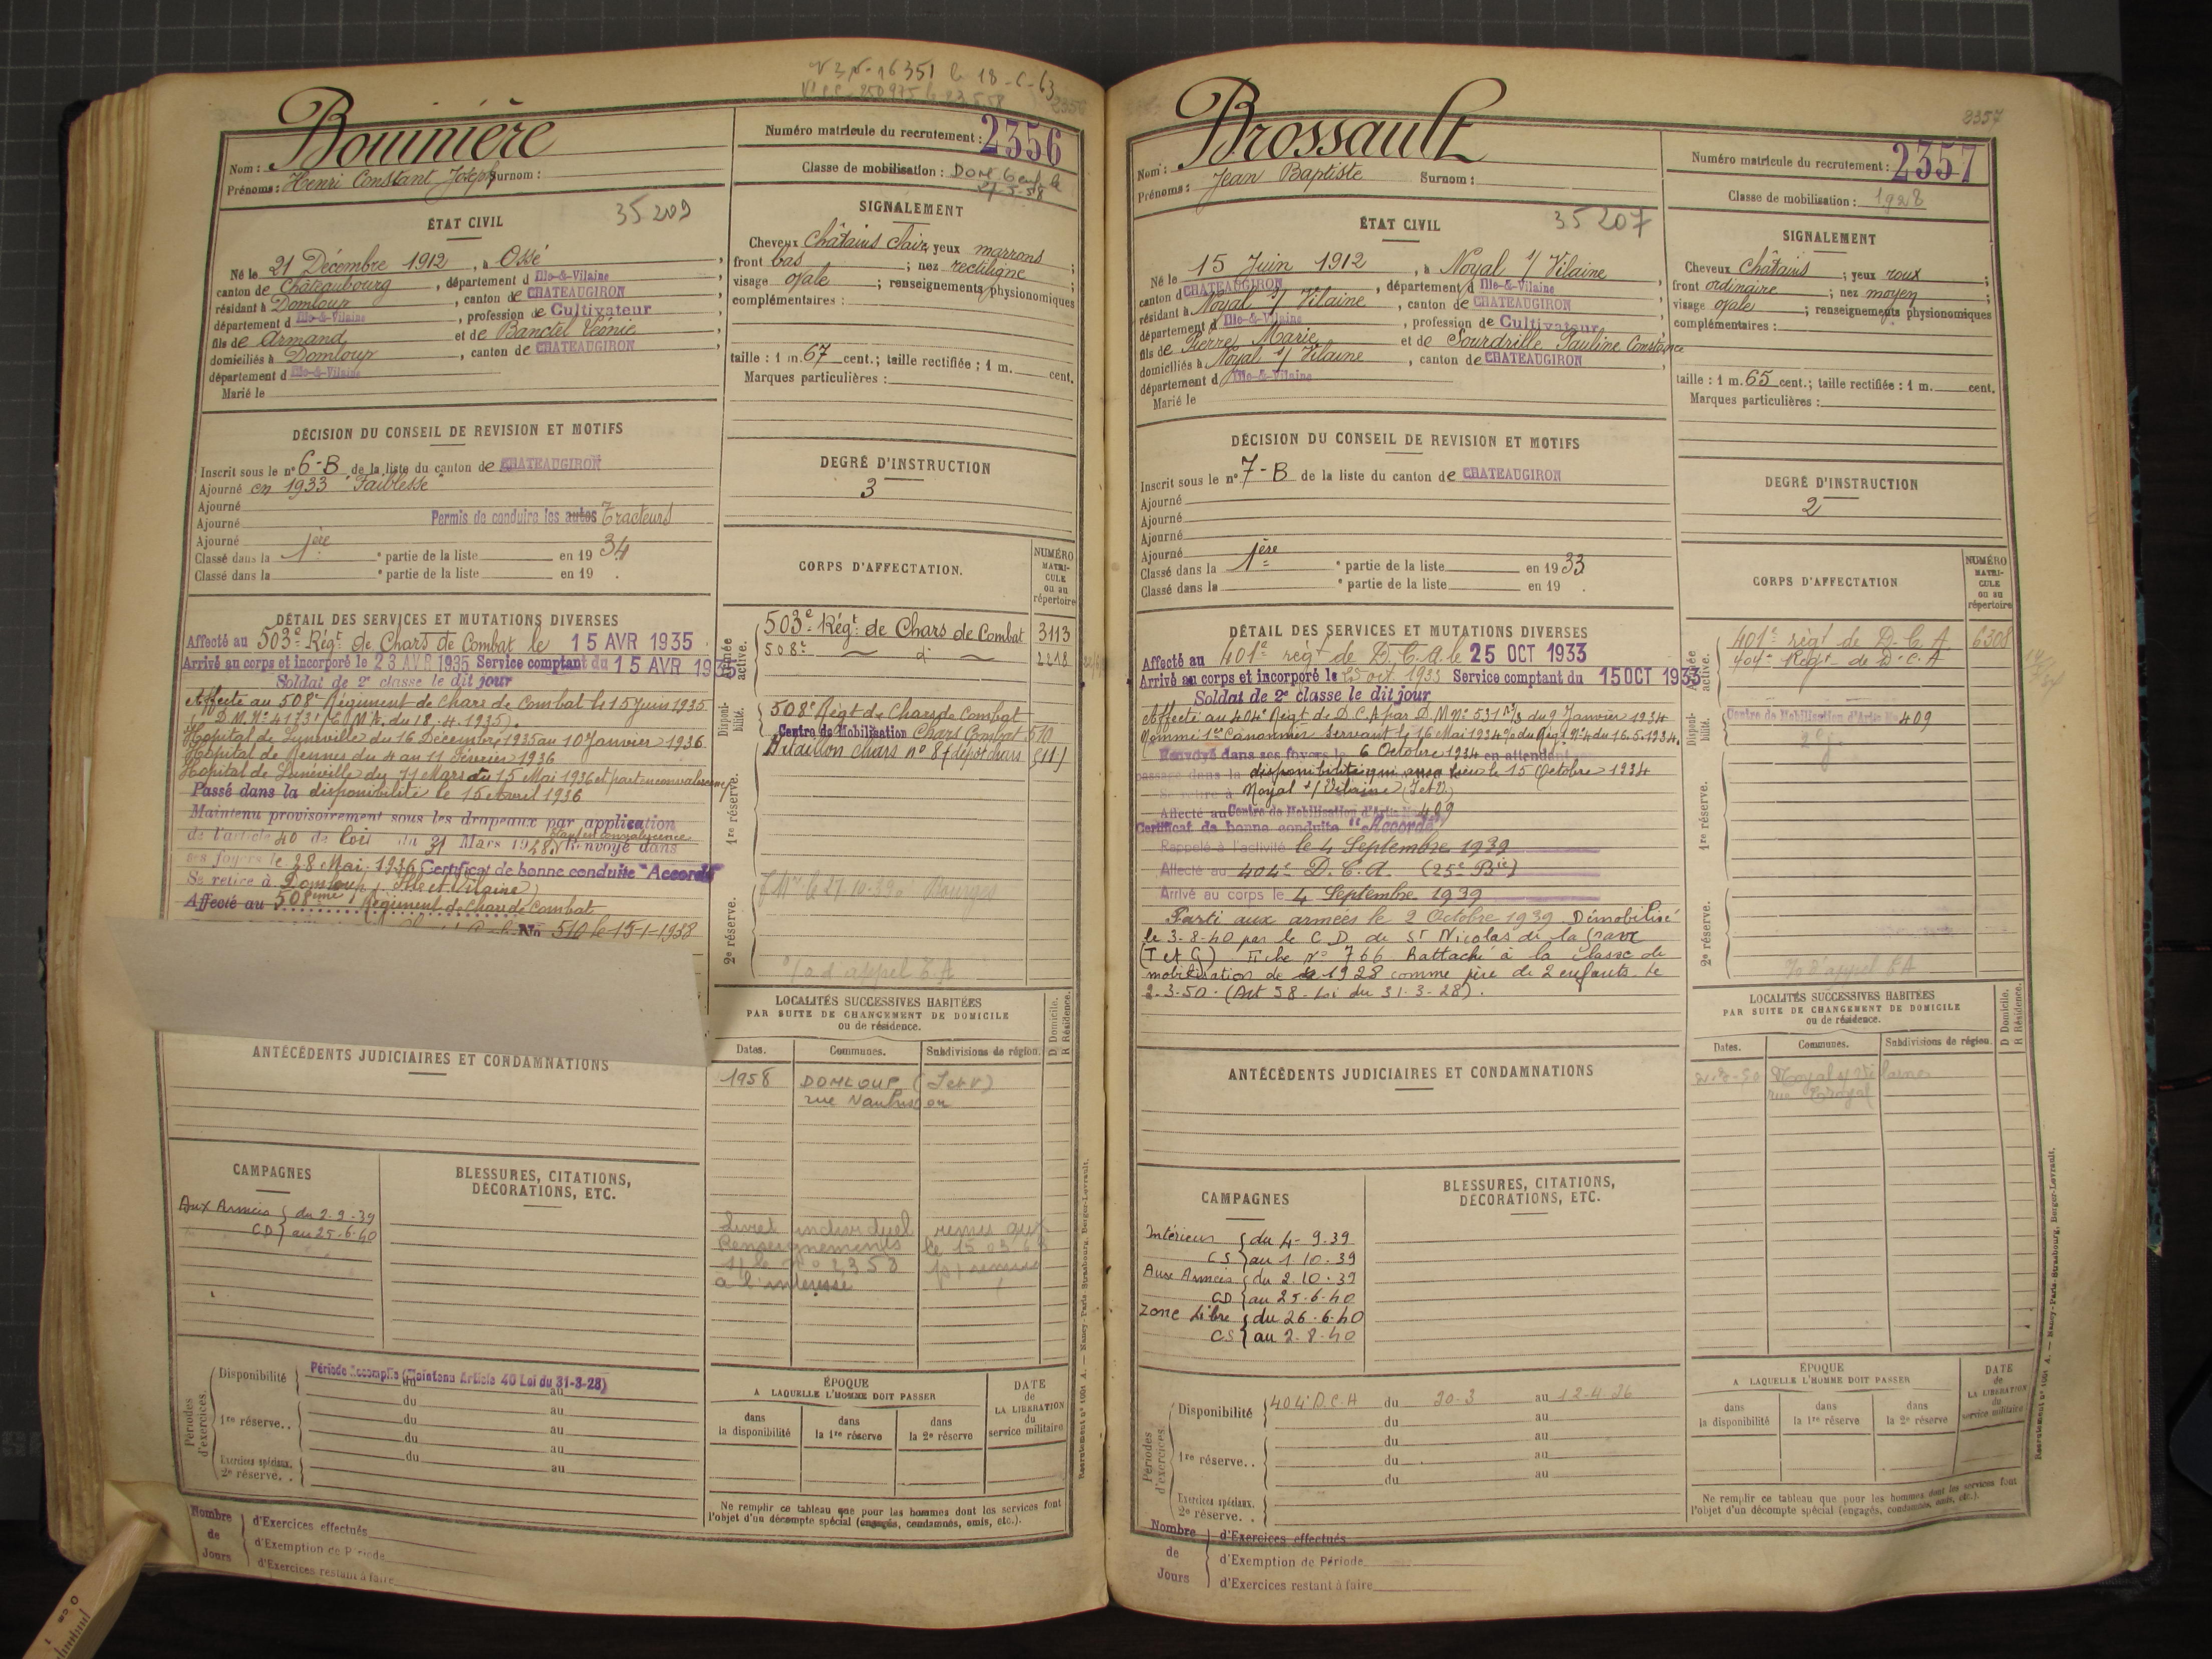 N° 16351 le 18-6-63
2356
Bouinière
Nom :
Prénoms : Henri Constant Joseph Surnom :
Numéro matricule du recrutement : 2356
Classe de mobilisation : Dom 6 enf. le
27-5-58
ÉTAT CIVIL
35209
Né le 21 Décembre 1912, à Ossé,
canton de Châteaubourg, département d Ille-&-Vilaine,
résidant à Domloup, canton de CHATEAUGIRON,
département d Ille-&-Vilaine, profession de Cultivateur,
fils de Armand et de Banctel Léonie,
domiciliés à Domloup, canton de CHATEAUGIRON,
département d Ille-&-Vilaine
Marié le
SIGNALEMENT
Cheveux Châtains clairs, yeux marrons ;
front bas ; nez rectiligne ;
visage ovale ; renseignements physionomiques
complémentaires :
taille : 1 m. 67 cent.; taille rectifiée : 1 m. cent.
Marques particulières :
DÉCISION DU CONSEIL DE REVISION ET MOTIFS
Inscrit sous le n° 6-B de la liste du canton de CHATEAUGIRON
Ajourné en 1933 "Faiblesse"
Ajourné
Ajourné Permis de conduire les autos Tracteurs
Ajourné
Classé dans la 1ère partie de la liste en 1934
Classé dans la partie de la liste en 19 .
DEGRÉ D'INSTRUCTION
3
CORPS D'AFFECTATION.
NUMÉRO MATRICULE ou au répertoire
Armée active.
503e Régt de Chars de Combat 3113
508e — d° — 2218
Disponibilité.
508e Régt de Chars de Combat
Centre de Mobilisation Chars Combat 510
Bataillon chars n° 8 (dépôt chars 511)
1re réserve.
2e réserve.
le 27.10.39 Bourges
d'appel T A
DÉTAIL DES SERVICES ET MUTATIONS DIVERSES
Affecté au 503e Régt de Chars de Combat le 15 AVR 1935
Arrivé au corps et incorporé le 23 AVR 1935 Service comptant du 15 AVR 1935
Soldat de 2e classe le dit jour
Affecté au 508e Régiment de Chars de Combat le 15 Juin 1935
(D.M. N° 4173 1/E.M.A. du 18.4.1935).
Hôpital de Lunéville du 16 Décembre 1935 au 10 Janvier 1936
Hôpital de Rennes du 4 au 11 Février 1936
Hôpital de Lunéville du 11 Mars au 15 Mai 1936 et part en convalescence
Passé dans la disponibilité le 15 Avril 1936
Maintenu provisoirement sous les drapeaux par application
de l'article 40 de loi du 31 Mars 1928 étant en convalescence Renvoyé dans
ses foyers le 28 Mai 1936 Certificat de bonne conduite "Accordé"
Se retire à Domloup (Ille et Vilaine)
Affecté au 508ème Régiment de Chars de Combat
No 510 le 15-1-1938
LOCALITÉS SUCCESSIVES HABITÉES
PAR SUITE DE CHANGEMENT DE DOMICILE
ou de résidence.
D Domicile.
R Résidence.
Dates. Communes. Subdivisions de région.
1958 DOMLOUP (I et V)
rue Naubusson
Livret individuel remis aux
Renseignements le 15 03 63
à l'intéressé
ANTÉCÉDENTS JUDICIAIRES ET CONDAMNATIONS
CAMPAGNES
Aux Armées du 2-9-39
CD au 25-6-40
BLESSURES, CITATIONS,
DÉCORATIONS, ETC.
Périodes d'exercices.
Disponibilité Période accomplie (Maintenu Article 40 Loi du 31-3-28)
du au
du au
1re réserve.. du au
du au
du au
Exercices spéciaux.
2e réserve. .
ÉPOQUE
A LAQUELLE L'HOMME DOIT PASSER
dans la disponibilité
dans la 1re réserve
dans la 2e réserve
DATE de LA LIBÉRATION du service militaire
Ne remplir ce tableau que pour les hommes dont les services font
l'objet d'un décompte spécial (engagés, condamnés, omis, etc.).
Nombre de Jours
d'Exercices effectués
d'Exemption de Période
d'Exercices restant à faire
Recrutement n° 1601 A. — Nancy-Paris-Strasbourg, Berger-Levrault.
2357
Brossault
Nom :
Prénoms : Jean Baptiste Surnom :
Numéro matricule du recrutement : 2357
Classe de mobilisation : 1928
ÉTAT CIVIL
35207
Né le 15 Juin 1912, à Noyal s/ Vilaine,
canton d CHATEAUGIRON, département d Ille-&-Vilaine,
résidant à Noyal s/ Vilaine, canton de CHATEAUGIRON,
département d Ille-&-Vilaine, profession de Cultivateur,
fils de Pierre Marie et de Sourdrille Pauline Constance
domiciliés à Noyal s/ Vilaine, canton de CHATEAUGIRON,
département d Ille-&-Vilaine
Marié le
SIGNALEMENT
Cheveux Châtains ; yeux roux ;
front ordinaire ; nez moyen ;
visage ovale ; renseignements physionomiques
complémentaires :
taille : 1 m. 65 cent.; taille rectifiée : 1 m. cent.
Marques particulières :
DÉCISION DU CONSEIL DE REVISION ET MOTIFS
Inscrit sous le n° 7-B de la liste du canton de CHATEAUGIRON
Ajourné
Ajourné
Ajourné
Ajourné
Classé dans la 1ère partie de la liste en 1933
Classé dans la partie de la liste en 19 .
DEGRÉ D'INSTRUCTION
2
CORPS D'AFFECTATION
NUMÉRO MATRICULE ou au répertoire
Armée active.
401e régt de D.C.A 6308
404e Régt de D.C.A
Disponibilité.
Centre de Mobilisation d'Artie No 409
1re réserve.
2e réserve.
d'appel T A
DÉTAIL DES SERVICES ET MUTATIONS DIVERSES
Affecté au 401e régt de D.C.A. le 25 OCT 1933
Arrivé au corps et incorporé le 25 oct. 1933 Service comptant du 15 OCT 1933
Soldat de 2e classe le dit jour
Affecté au 404e Régt de D.C.A par D.M N° 531 1/3 du 9 Janvier 1934
Nommé 1er Canonnier servant le 16 Mai 1934 O/ du Régt N°4 du 16.5.1934.
Renvoyé dans ses foyers le 6 Octobre 1934 en attendant
passage dans la disponibilité qui aura lieu le 15 Octobre 1934
Se retire à Noyal s/ Vilaine (I et V.)
Affecté au Centre de Mobilisation d'Artie No 409
Certificat de bonne conduite "Accordé"
Rappelé à l'activité le 4 Septembre 1939
Affecté au 404e D.C.A. (25e Bie)
Arrivé au corps le 4 Septembre 1939
Parti aux armées le 2 Octobre 1939. Démobilisé
le 3-8-40 par le C.D. de St Nicolas de la Grave
(T et G) Fiche N° 766 Rattaché à la classe de
mobilisation de 1928 comme père de 2 enfants le
2-3-50. (Art 58 - Loi du 31-3-28).
LOCALITÉS SUCCESSIVES HABITÉES
PAR SUITE DE CHANGEMENT DE DOMICILE
ou de résidence.
D Domicile.
R Résidence.
Dates. Communes. Subdivisions de région.
Noyal s/ Vilaine
rue
ANTÉCÉDENTS JUDICIAIRES ET CONDAMNATIONS
CAMPAGNES
Intérieur du 4-9-39
CS au 1 10.39
Aux Armées du 2.10.39
CD au 25.6.40
Zone Libre du 26.6.40
CS au 2-8-40
BLESSURES, CITATIONS,
DÉCORATIONS, ETC.
Périodes d'exercices.
Disponibilité 404e D.C.A du 20-3 au 12-4-36
du au
du au
1re réserve.. du au
du au
Exercices spéciaux.
2e réserve. .
ÉPOQUE
A LAQUELLE L'HOMME DOIT PASSER
dans la disponibilité
dans la 1re réserve
dans la 2e réserve
DATE de LA LIBÉRATION du service militaire
Ne remplir ce tableau que pour les hommes dont les services font
l'objet d'un décompte spécial (engagés, condamnés, omis, etc.).
Nombre de Jours
d'Exercices effectués
d'Exemption de Période
d'Exercices restant à faire
Recrutement n° 1601 A. — Nancy-Paris-Strasbourg, Berger-Levrault.